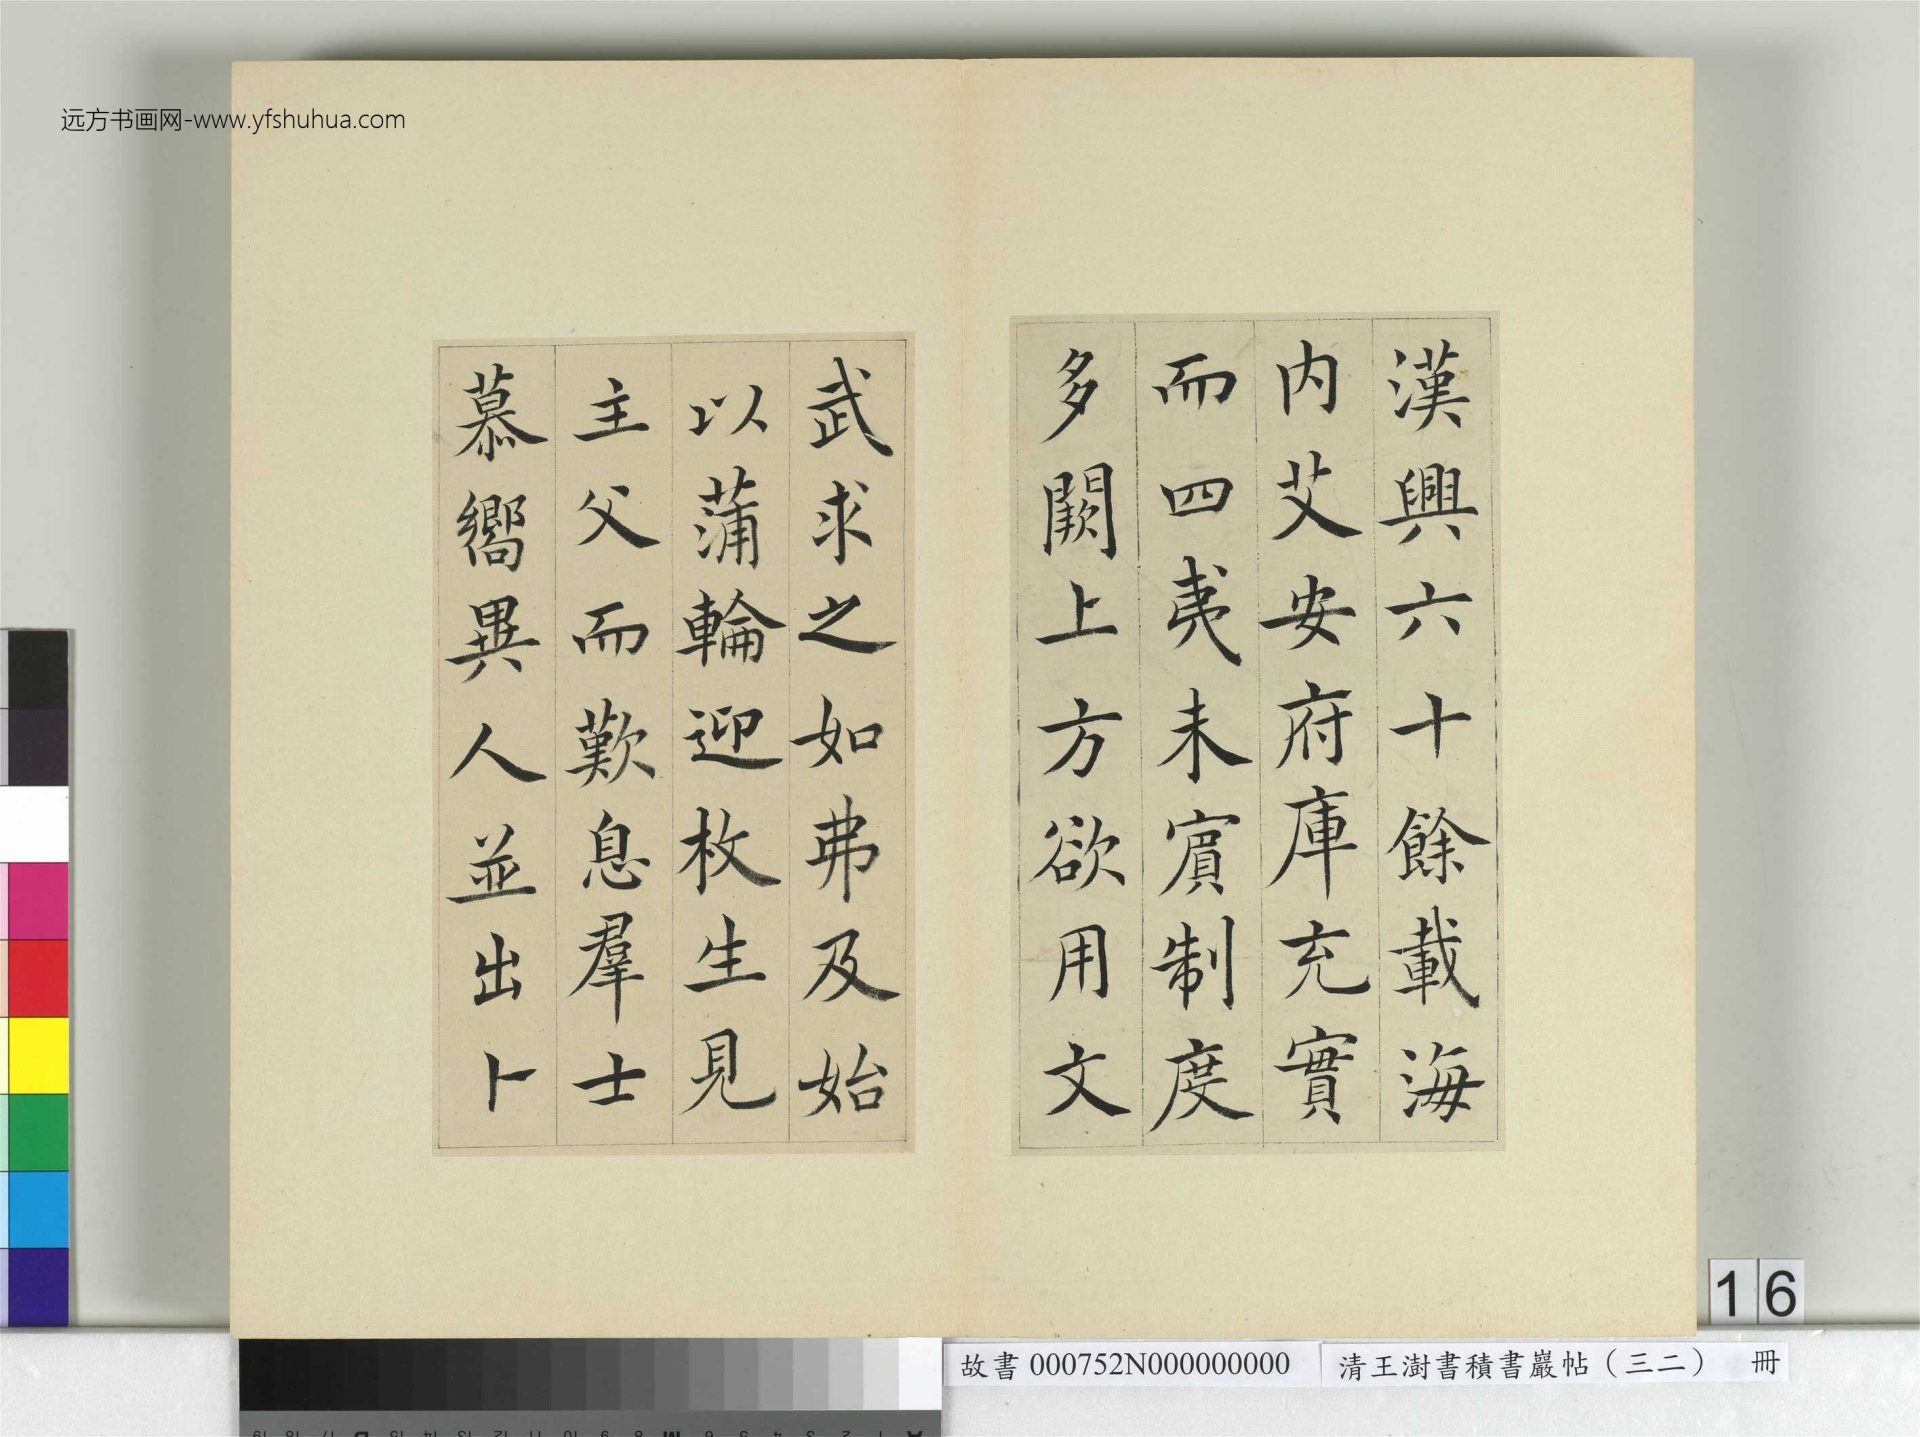 远方书画网-www.yfshuhua.com
漢興六十餘載海
内艾安府庫充實
而四夷未賔制度
多闕上方欲用文
武求之如弗及始
以蒲輪迎枚生見
主父而歎息羣士
慕嚮異人並出卜
16
故書 000752N000000000
清王澍書積書巖帖（三二） 冊